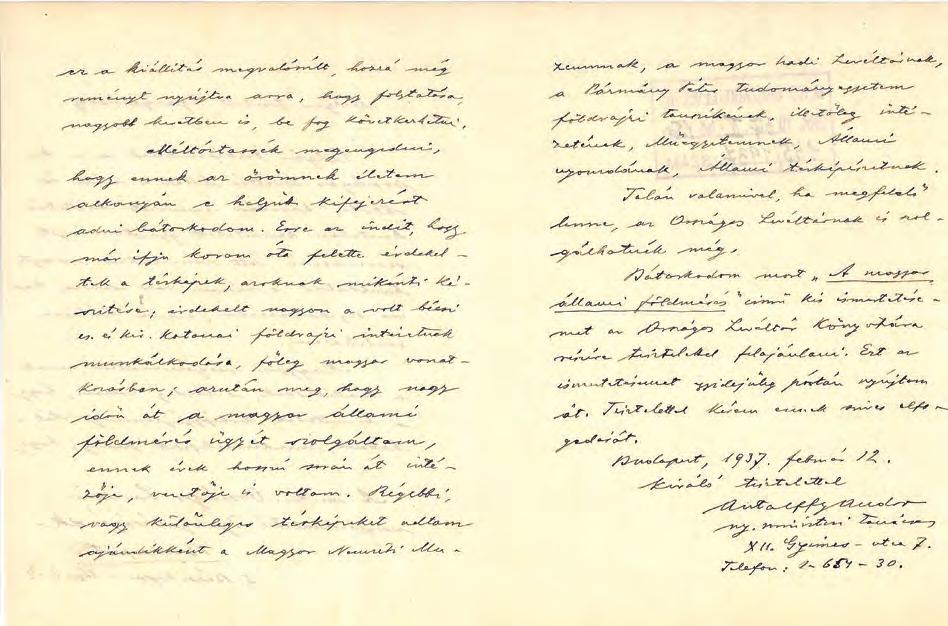 ez a kiállítás megvalósúlt, hozzá még
reményt nyújtva arra, hogy folytatása,
nagyobb keretben is, be fog következhetni.
Méltóztassék megengedni,
hogy ennek az örömnek életem
alkonyán e helyütt kifejezést
adni bátorkodom. Erre az indít, hogy
már ifju korom óta felette érdekel-
tek a térképek, azoknak mikénti ké-
szitése; érdekelt nagyon a volt bécsi
cs. és kir. katonai földrajzi intézetnek
munkálkodása, főleg magyar vonat-
kozásban; azután meg, hogy nagy
időn át a magyar állami
földmérés ügyét szolgáltam,
ennek évek hosszú során át inté-
zője, vezetője is voltam. Régebbi,
vagy különleges térképeket adtam
ajándékként a Magyar Nemzeti Mu-
zeumnak, a magyar hadi Levéltárnak,
a Pázmány Péter tudományegyetem
földrajzi tanszékének, illetőleg inté-
zetének, Műegyetemnek, Állami
nyomdának, Állami térképészetnek.
Talán valamivel, ha megfelelő
lenne, az Országos Levéltárnak is szol-
gálhatnék még.
Bátorkodom most "A magyar
állami földmérés" című kis ismertetése-
met az Országos Levéltár Könyvtára
részére tisztelettel felajánlani. Ezt az
ismertetésemet egyidejüleg postán nyújtom
át. Tisztelettel kérem ennek szives elfo-
gadását.
Budapest, 1937. február 12.
Kiváló tisztelettel
Antalffy Andor
ny. miniszteri tanácsos
XII. Gyimes-utca 7.
Telefon: 1-654-30.